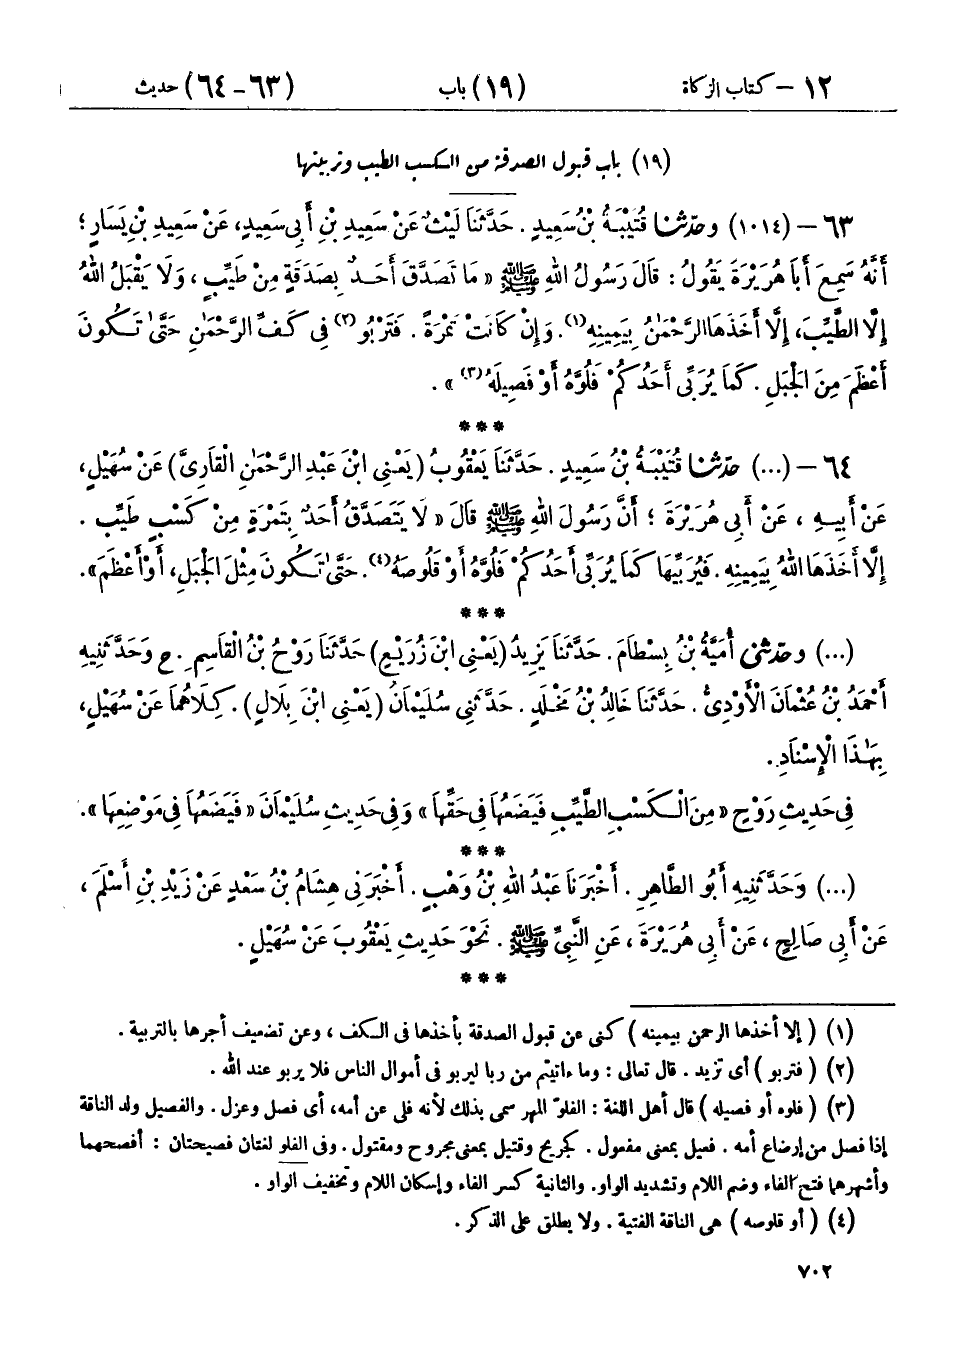 ١٢ – كتاب الزكاة (١٩) باب (٦٣–٦٤) حديث
(١٩) باب قبول الصدقة من الكسب الطيب وتربيتها
٦٣ – (١٠١٤) وحَدَّثَنَا قُتَيْبَةُ بْنُ سَعِيدٍ . حَدَّثَنَا لَيْثٌ عَنْ سَعِيدِ بْنِ أَبِي سَعِيدٍ، عَنْ سَعِيدِ بْنِ يَسَارٍ ؛
أَنَّهُ سَمِعَ أَبَا هُرَيْرَةَ يَقُولُ : قَالَ رَسُولُ اللهِ ﷺ « مَا تَصَدَّقَ أَحَدٌ بِصَدَقَةٍ مِنْ طَيِّبٍ ، وَلَا يَقْبَلُ اللهُ
إِلَّا الطَّيِّبَ، إِلَّا أَخَذَهَا الرَّحْمَٰنُ بِيَمِينِهِ(١). وَإِنْ كَانَتْ تَمْرَةً . فَتَرْبُو(٢) فِي كَفِّ الرَّحْمَٰنِ حَتَّىٰ تَكُونَ
أَعْظَمَ مِنَ الْجَبَلِ . كَمَا يُرَبِّي أَحَدُكُمْ فَلُوَّهُ أَوْ فَصِيلَهُ(٣) » .
***
٦٤ – (...) حَدَّثَنَا قُتَيْبَةُ بْنُ سَعِيدٍ . حَدَّثَنَا يَعْقُوبُ (يَعْنِي ابْنَ عَبْدِ الرَّحْمَٰنِ الْقَارِيَّ) عَنْ سُهَيْلٍ،
عَنْ أَبِيهِ ، عَنْ أَبِي هُرَيْرَةَ ؛ أَنَّ رَسُولَ اللهِ ﷺ قَالَ « لَا يَتَصَدَّقُ أَحَدٌ بِتَمْرَةٍ مِنْ كَسْبٍ طَيِّبٍ .
إِلَّا أَخَذَهَا اللهُ بِيَمِينِهِ . فَيُرَبِّيهَا كَمَا يُرَبِّي أَحَدُكُمْ فَلُوَّهُ أَوْ قَلُوصَهُ(٤). حَتَّىٰ تَكُونَ مِثْلَ الْجَبَلِ، أَوْ أَعْظَمَ».
***
(...) وحَدَّثَنِي أُمَيَّةُ بْنُ بِسْطَامَ . حَدَّثَنَا يَزِيدُ (يَعْنِي ابْنَ زُرَيْعٍ) حَدَّثَنَا رَوْحُ بْنُ الْقَاسِمِ . ح وَحَدَّثَنِيهِ
أَحْمَدُ بْنُ عُثْمَانَ الْأَوْدِيُّ . حَدَّثَنَا خَالِدُ بْنُ مَخْلَدٍ . حَدَّثَنِي سُلَيْمَانُ (يَعْنِي ابْنَ بِلَالٍ) . كِلَاهُمَا عَنْ سُهَيْلٍ،
بِهَٰذَا الْإِسْنَادِ .
فِي حَدِيثِ رَوْحٍ « مِنَ الْكَسْبِ الطَّيِّبِ فَيَضَعُهَا فِي حَقِّهَا» وَفِي حَدِيثِ سُلَيْمَانَ « فَيَضَعُهَا فِي مَوْضِعِهَا ».
***
(...) وَحَدَّثَنِيهِ أَبُو الطَّاهِرِ . أَخْبَرَنَا عَبْدُ اللهِ بْنُ وَهْبٍ . أَخْبَرَنِي هِشَامُ بْنُ سَعْدٍ عَنْ زَيْدِ بْنِ أَسْلَمَ ،
عَنْ أَبِي صَالِحٍ ، عَنْ أَبِي هُرَيْرَةَ ، عَنِ النَّبِيِّ ﷺ . نَحْوَ حَدِيثِ يَعْقُوبَ عَنْ سُهَيْلٍ .
***
(١) ( إلا أخذها الرحمن بيمينه ) كنى عن قبول الصدقة بأخذها فى الكف ، وعن تضعيف أجرها بالتربية .
(٢) ( فتربو ) أى تزيد . قال تعالى : وما ءاتيتم من ربا ليربو فى أموال الناس فلا يربو عند الله .
(٣) ( فلوه أو فصيله ) قال أهل اللغة : الفلوّ المهر سمى بذلك لأنه فلى عن أمه، أى فصل وعزل . والفصيل ولد الناقة
إذا فصل من إرضاع أمه . فعيل بمعنى مفعول . كجريح وقتيل بمعنى مجروح ومقتول . وفى الفلو لغتان فصيحتان : أفصحهما
وأشهرهما فتح الفاء وضم اللام وتشديد الواو. والثانية كسر الفاء وإسكان اللام وتخفيف الواو .
(٤) ( أو قلوصه ) هى الناقة الفتية . ولا يطلق على الذكر .
٧٠٢